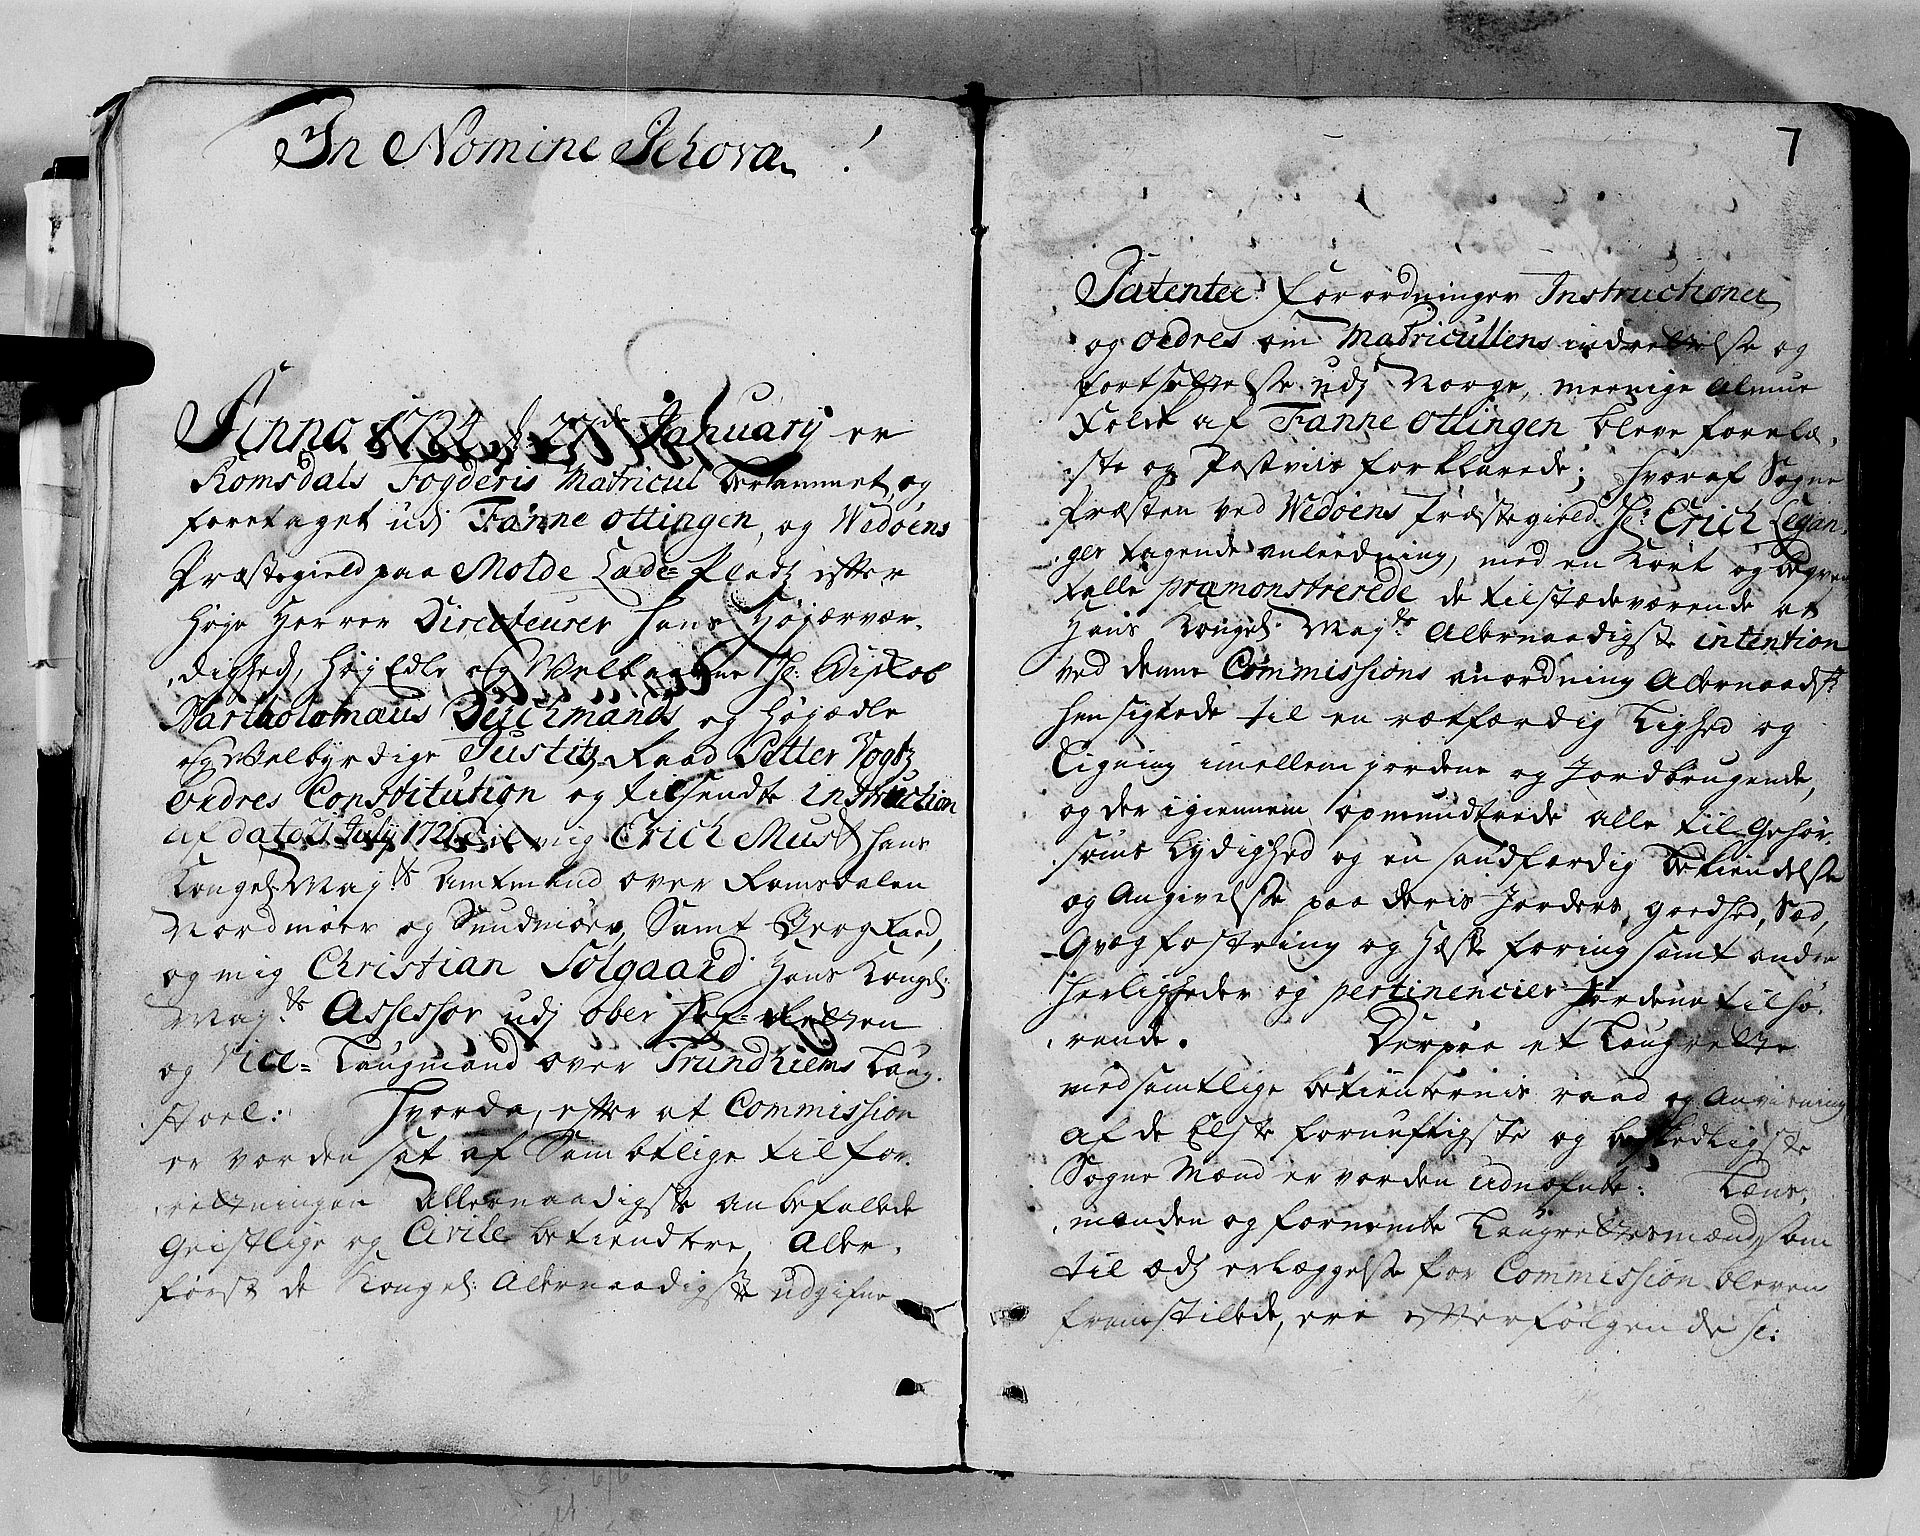 In Nomine Jehovæ !
Anno 1724 d 27de January er
Romsdals Fogderis Matricul berammet, og
foretaget udj Fanne ottingen, og Wedøens
Præstegield paa Molde Lade-Pladtz efter
høye Herrer Directeurer Hans Høyærvær-
dighed, Høy Edle og Welbaarne Hr. Biskob
Bartholomæus Deichmands og Høyædle
og Welbyrdige Justitz Raad Petter Vogtz
Ordres Constitution og tilsendte instruction
af dato 21 July 1721 til mig Erich Must hans
Kongel: May:ts Amtmand over Romsdalen
Nordmøer og Sundmøer, Samt Berg Raad,
og mig Christian Solgaard Hans Kongel:
May:ts Assessor udj ober Hof-Retten
og Vice-Laugmand over Trundhiems Laug-
stoel: Hvorda, efter at Commission
er vorden sat af Sambtlige til for-
rettningen Allernaadigste anbefallede
Geistlige og Civile betiendtere, Aller-
først de Kongel: Allernaadigste udgifne
7
Patenter Forordninger Instructioner
og ordres om Matricullens indrettelse og
fortsettelse udj Norge, meenige Almue
Folck af Fanne ottingen bleve forelæ-
ste og Postviis forklarede; hvoraf Sogne
Præsten ved Wedøens Præstegield Hr: Erich Legan-
ger tagende anleedning, med en kort og
talle præmonstrerede de tilstædeværende at
Hans Kongel: May:ts Allernaadigste intention
ved denne Commissions anordning Allernaadst
hensigtede til en rætfærdig Lighed og
Ligning imellem jordene og Jordbrugende,
og der igiennem opmundtrede alle til Gehør-
soms Lydighed og en sandfærdig bekiendelse
og Angivelse paa deris Jorders, goedhed, Sæd,
Qvægfostring og Hæste foring samt andre
Herligheder og pertinencier Jordene tilhø-
rende. Derpaa et Laugrette
med samtlige betienternis raad og Anvisning
af de Elste fornuftigste og beskedligste
Sogne Mænd er vorden udnæfnte: Læns-
manden og fornemte Laugrettesmænd, som
til æds erlæggelse for Commission bleven
fremstillede, ere efterfølgende sc: